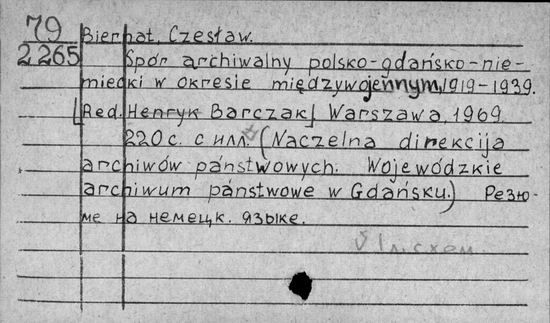 79
2265
Biernat, Czesław.
Spór archiwalny polsko-gdańsko-nie-
miecki w okresie międzywojennym, 1919-1939.
[Red. Henryk Barczak] Warszawa, 1969.
220 с. с илл. (Naczelna direkcija
archiwów państwowych. Wojewódzkie
archiwum państwowe w Gdańsku.) Резю-
ме на немецк. языке.
1 л. схем.